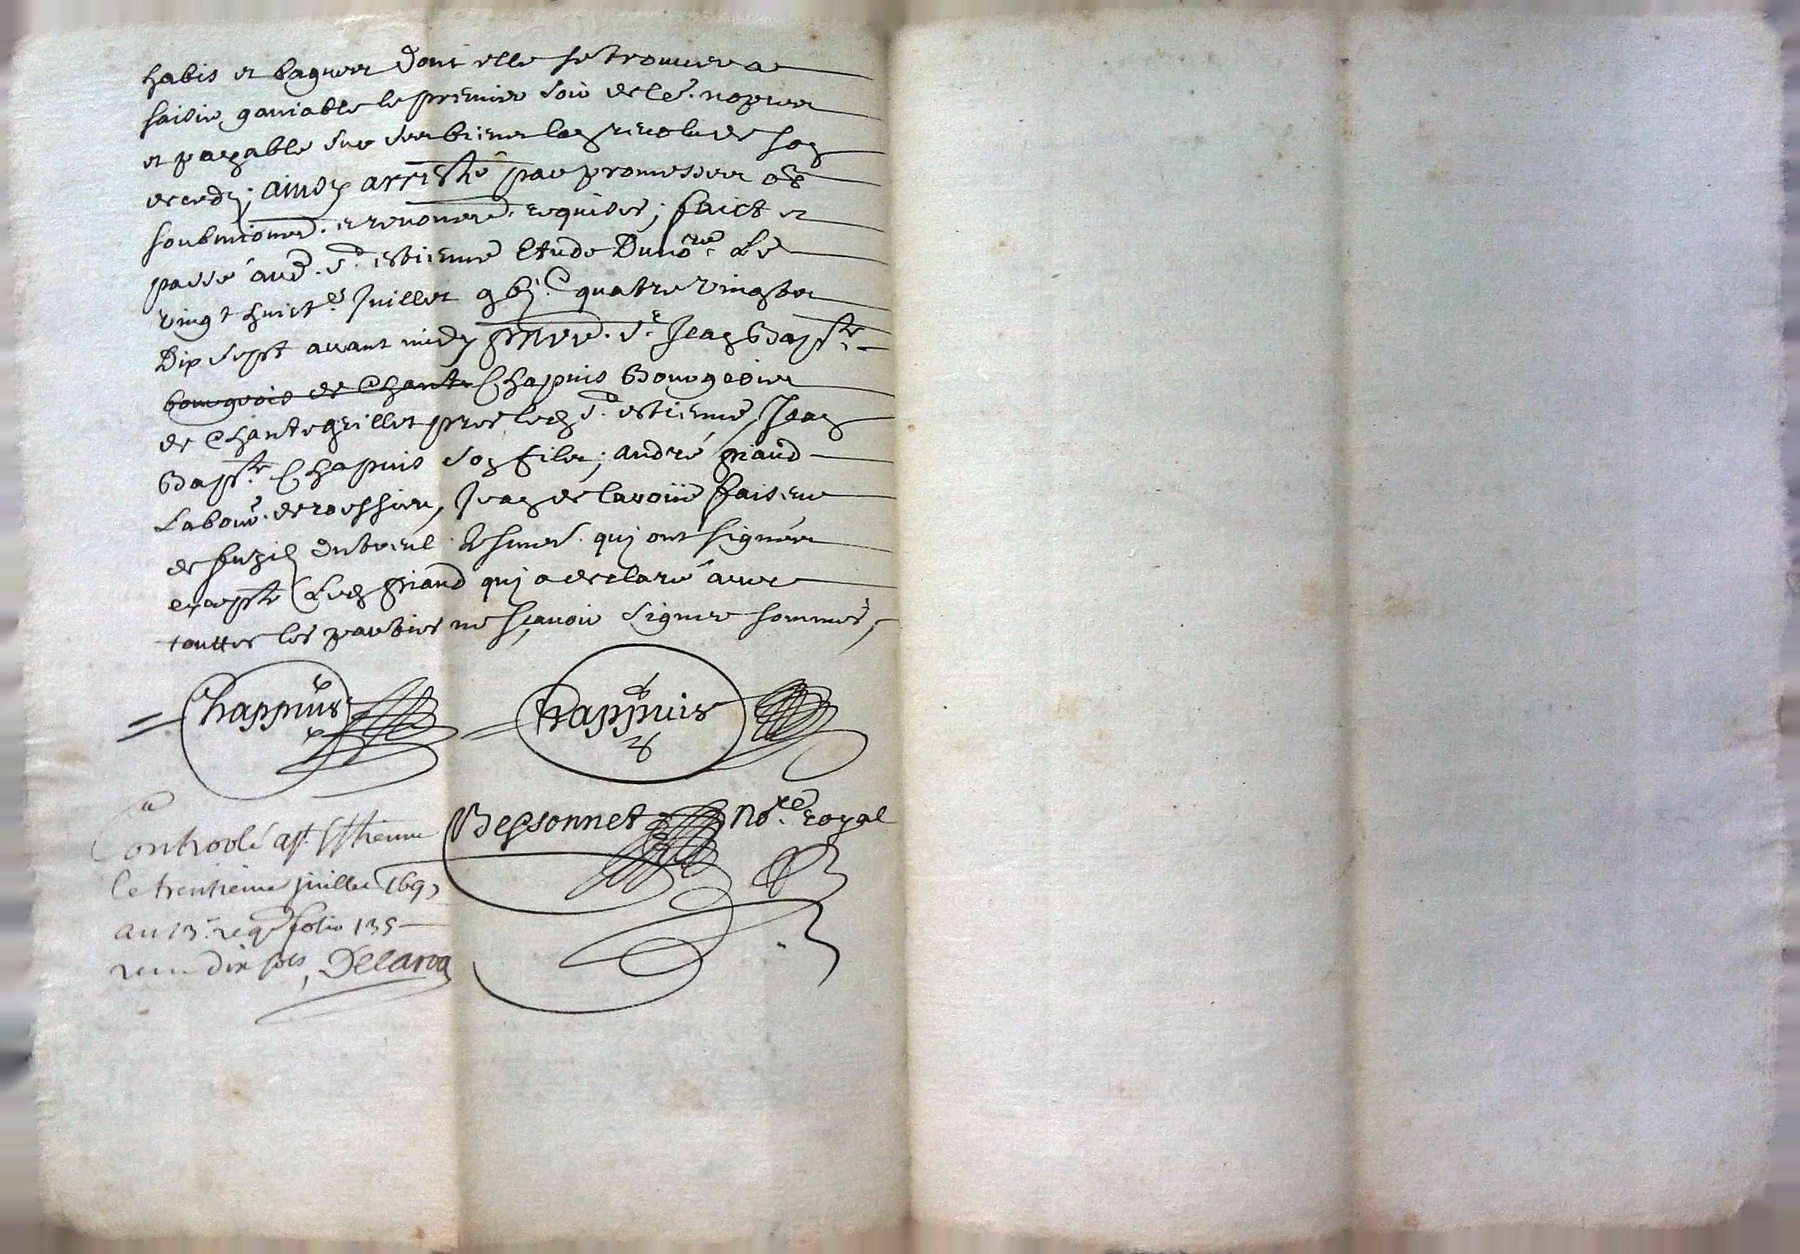 habis et bagues dont elle se trouvera
saisie, ganiable le premier soir de les. nopces
et payable sur ses biens lors revolu de son
deceds; ainsy arresté par promesses obs
soubmions. et renonons. requises; faict et
passé aud. St. estienne Etude Du nore. Le
vingt huicte. Juillet gbj.C quatre vingtz
Dix sept avant midy pnts. Sr. Jean Bapte.
bourgeois de Chante Chapuis Bourgeois
de Chantegrillet pres led St. estienne, Jean
Bapte. Chapuis son filz; andré griaud
Labour. de rochssieu, Jean de lavoüé faiseur
de fuzil dubreul tesmes. quj ont signés
excepté Led griaud quj a declaré avec
touttes les parties ne sçavoir signer sommés,
Chappuis Chappuis
Bessonnet nore. royal
Controolé a St. Esthienne
le trentieme juillet 1697
au 13e. regre folio 135
receu dix sols, Delaroa